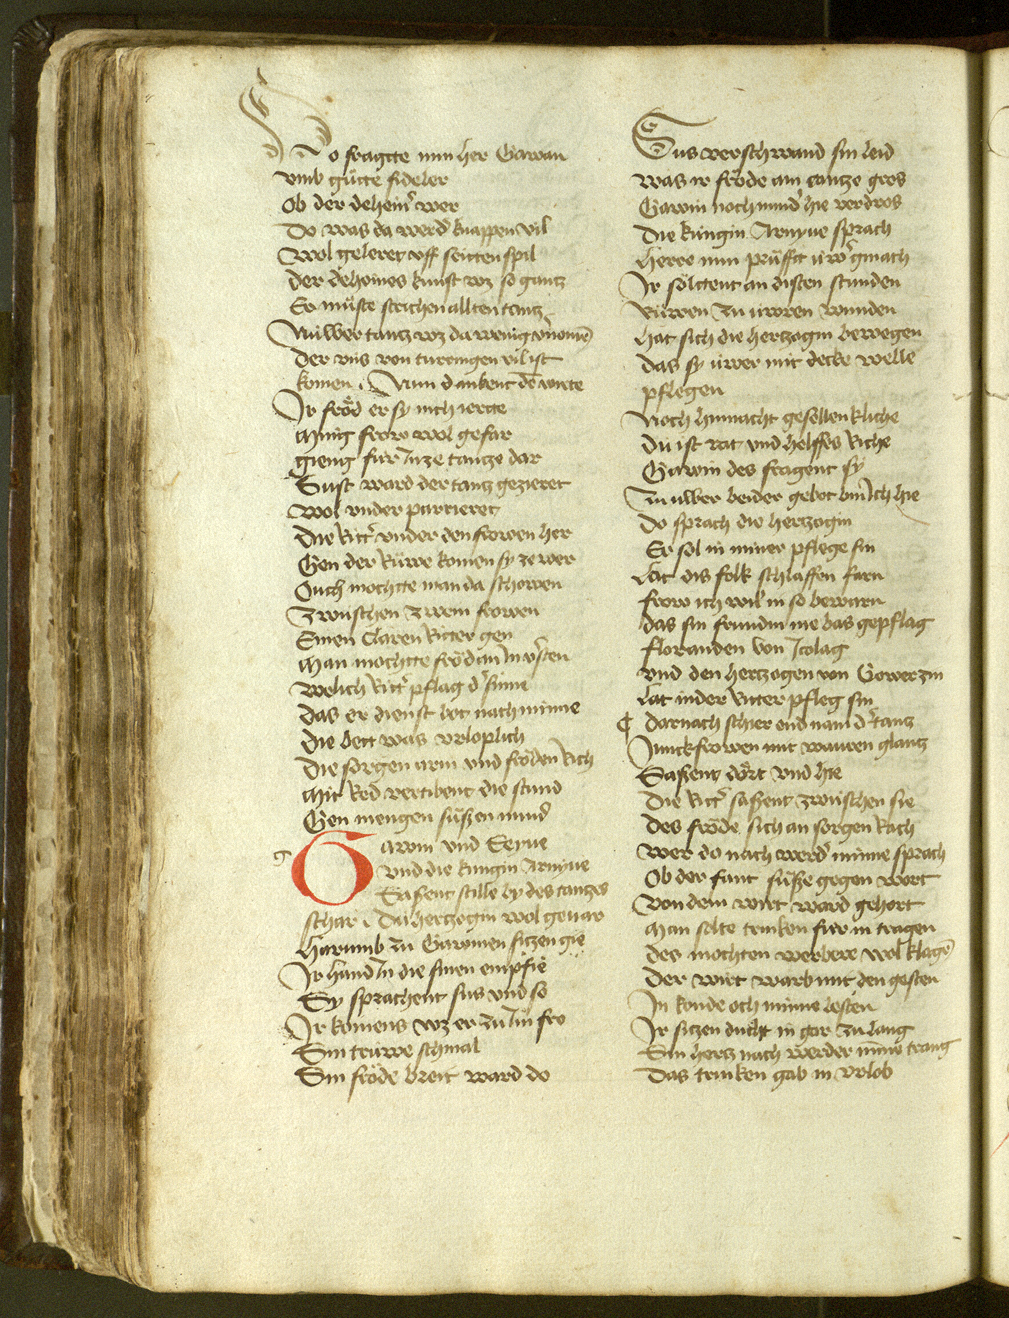 Do fragtte nun her Gawan
vmb gütte fideler
Ob der dehein͛ wer
Do was da werd͛ knappen vil
Wol geleret vff seitten spil
der deheines kunst wz so gantz
Er müste strichen allten tantz
Nüwer tantz wz da wenig v͛nomē
Der vns von turringen vil ist
komen . Nun dankent dē wirte
Jr fröd er sy nith jerrte
Manig frow wol gefar
gieng für Jnze tantze dar
Sust ward der tantz gezieret
Wol vnder partieret
Die Ritt͛ vnder den frowen her
Gen der Rüwe komen sy ze wer
Ouch mochtte man da schowen
Zwüschen zwein frowen
Einen Claren Ritter gen
Man mochtte fröd an Jn v͛sten
Welich Ritt͛ pflag d͛ sinne
Das er dienst bot nach minne
Die bett was vrloplich
Die sorgen arm vnd fröden Rich
Mit Red vertibent die stund
Gen mengen süßen mund͛
Gawin vnd Seyue
vnd die kungin Arnyue
Saßent stille by des tantzes
schar . Du hertzogin wol geuar
Harumb zu Gawinen sitzen gie
Jr hand Jn die sinen empfie
Sy sprachent sus vnd so
Jr komens wz er zu Jm fro
Sin trüwe schmal
Sin fröde breit ward do
Sus verschwand sin leid
Was ir fröde am tantze gros
Gawin noch mind͛ hie verdros
Die kungin Arnyue sprach
Herre nun prüffet üw͛ gmach
Jr söltent an disen stunden
Rüwen zu üwren wunden
Hat sich die hertzogin bewegen
das sy üwer mit decke welle
pflegen
Noch hinnacht gesellenkliche
Du ist rat vnd helffes Riche
Gawin des fragent sy
Jn üwer beider gebot bin Jch hie
Do sprach die hertzogin
Er sol in miner pflege sin
Lat dis folk schlaffen farn
frow ich wil in so bewarn
das sin frundin nie bas gepflag
florianden von Jtolag
vnd den hertzogen von Gowerzin
Lat in der Ritter pfleg sin
¶ Darnach schier end nam d͛ tantz
Junckfrowen mit waruen glantz
Saßent dört vnd hie
Die Ritt͛ saßent zwüschen sie
Des fröde sich an sorgen Rach
Wer do nach werd͛ minne sprach
Ob der fant süße gegen wort
Von dem wirt ward gehort
Man solte trinken für in tragen
des mochten werbere wol klagē
Der wirt warb mit den gesten
Jn konde och minne lesten
Jr sitzen ducht in gar zu lang
Sin hertz nach werder minne trang
Das trinken gab in vrlob